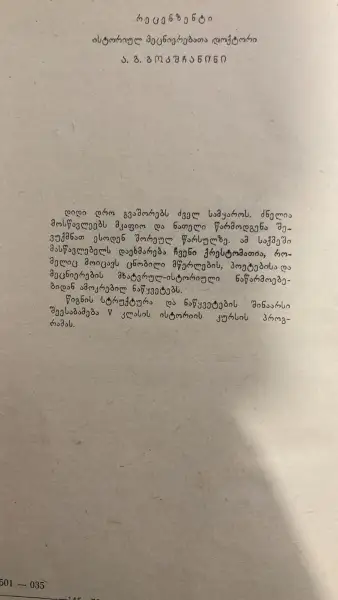 რეცენზენტი
ისტორიულ მეცნიერებათა დოქტორი
ა. გ. ბოკშჩანინი
დიდი დრო გვაშორებს ძველ სამყაროს. ძნელია
მოსწავლეებს მკაფიო და ნათელი წარმოდგენა შე-
ვუქმნათ ესოდენ შორეულ წარსულზე. ამ საქმეში
მასწავლებელს დაეხმარება ჩვენი ქრესტომათია, რო-
მელიც მოიცავს ცნობილი მწერლების, პოეტებისა და
მეცნიერების მხატვრულ-ისტორიული ნაწარმოებე-
ბიდან ამოკრებილ ნაწყვეტებს.
წიგნის სტრუქტურა და ნაწყვეტების შინაარსი
შეესაბამება V კლასის ისტორიის კურსის პროგ-
რამას.
501 — 035